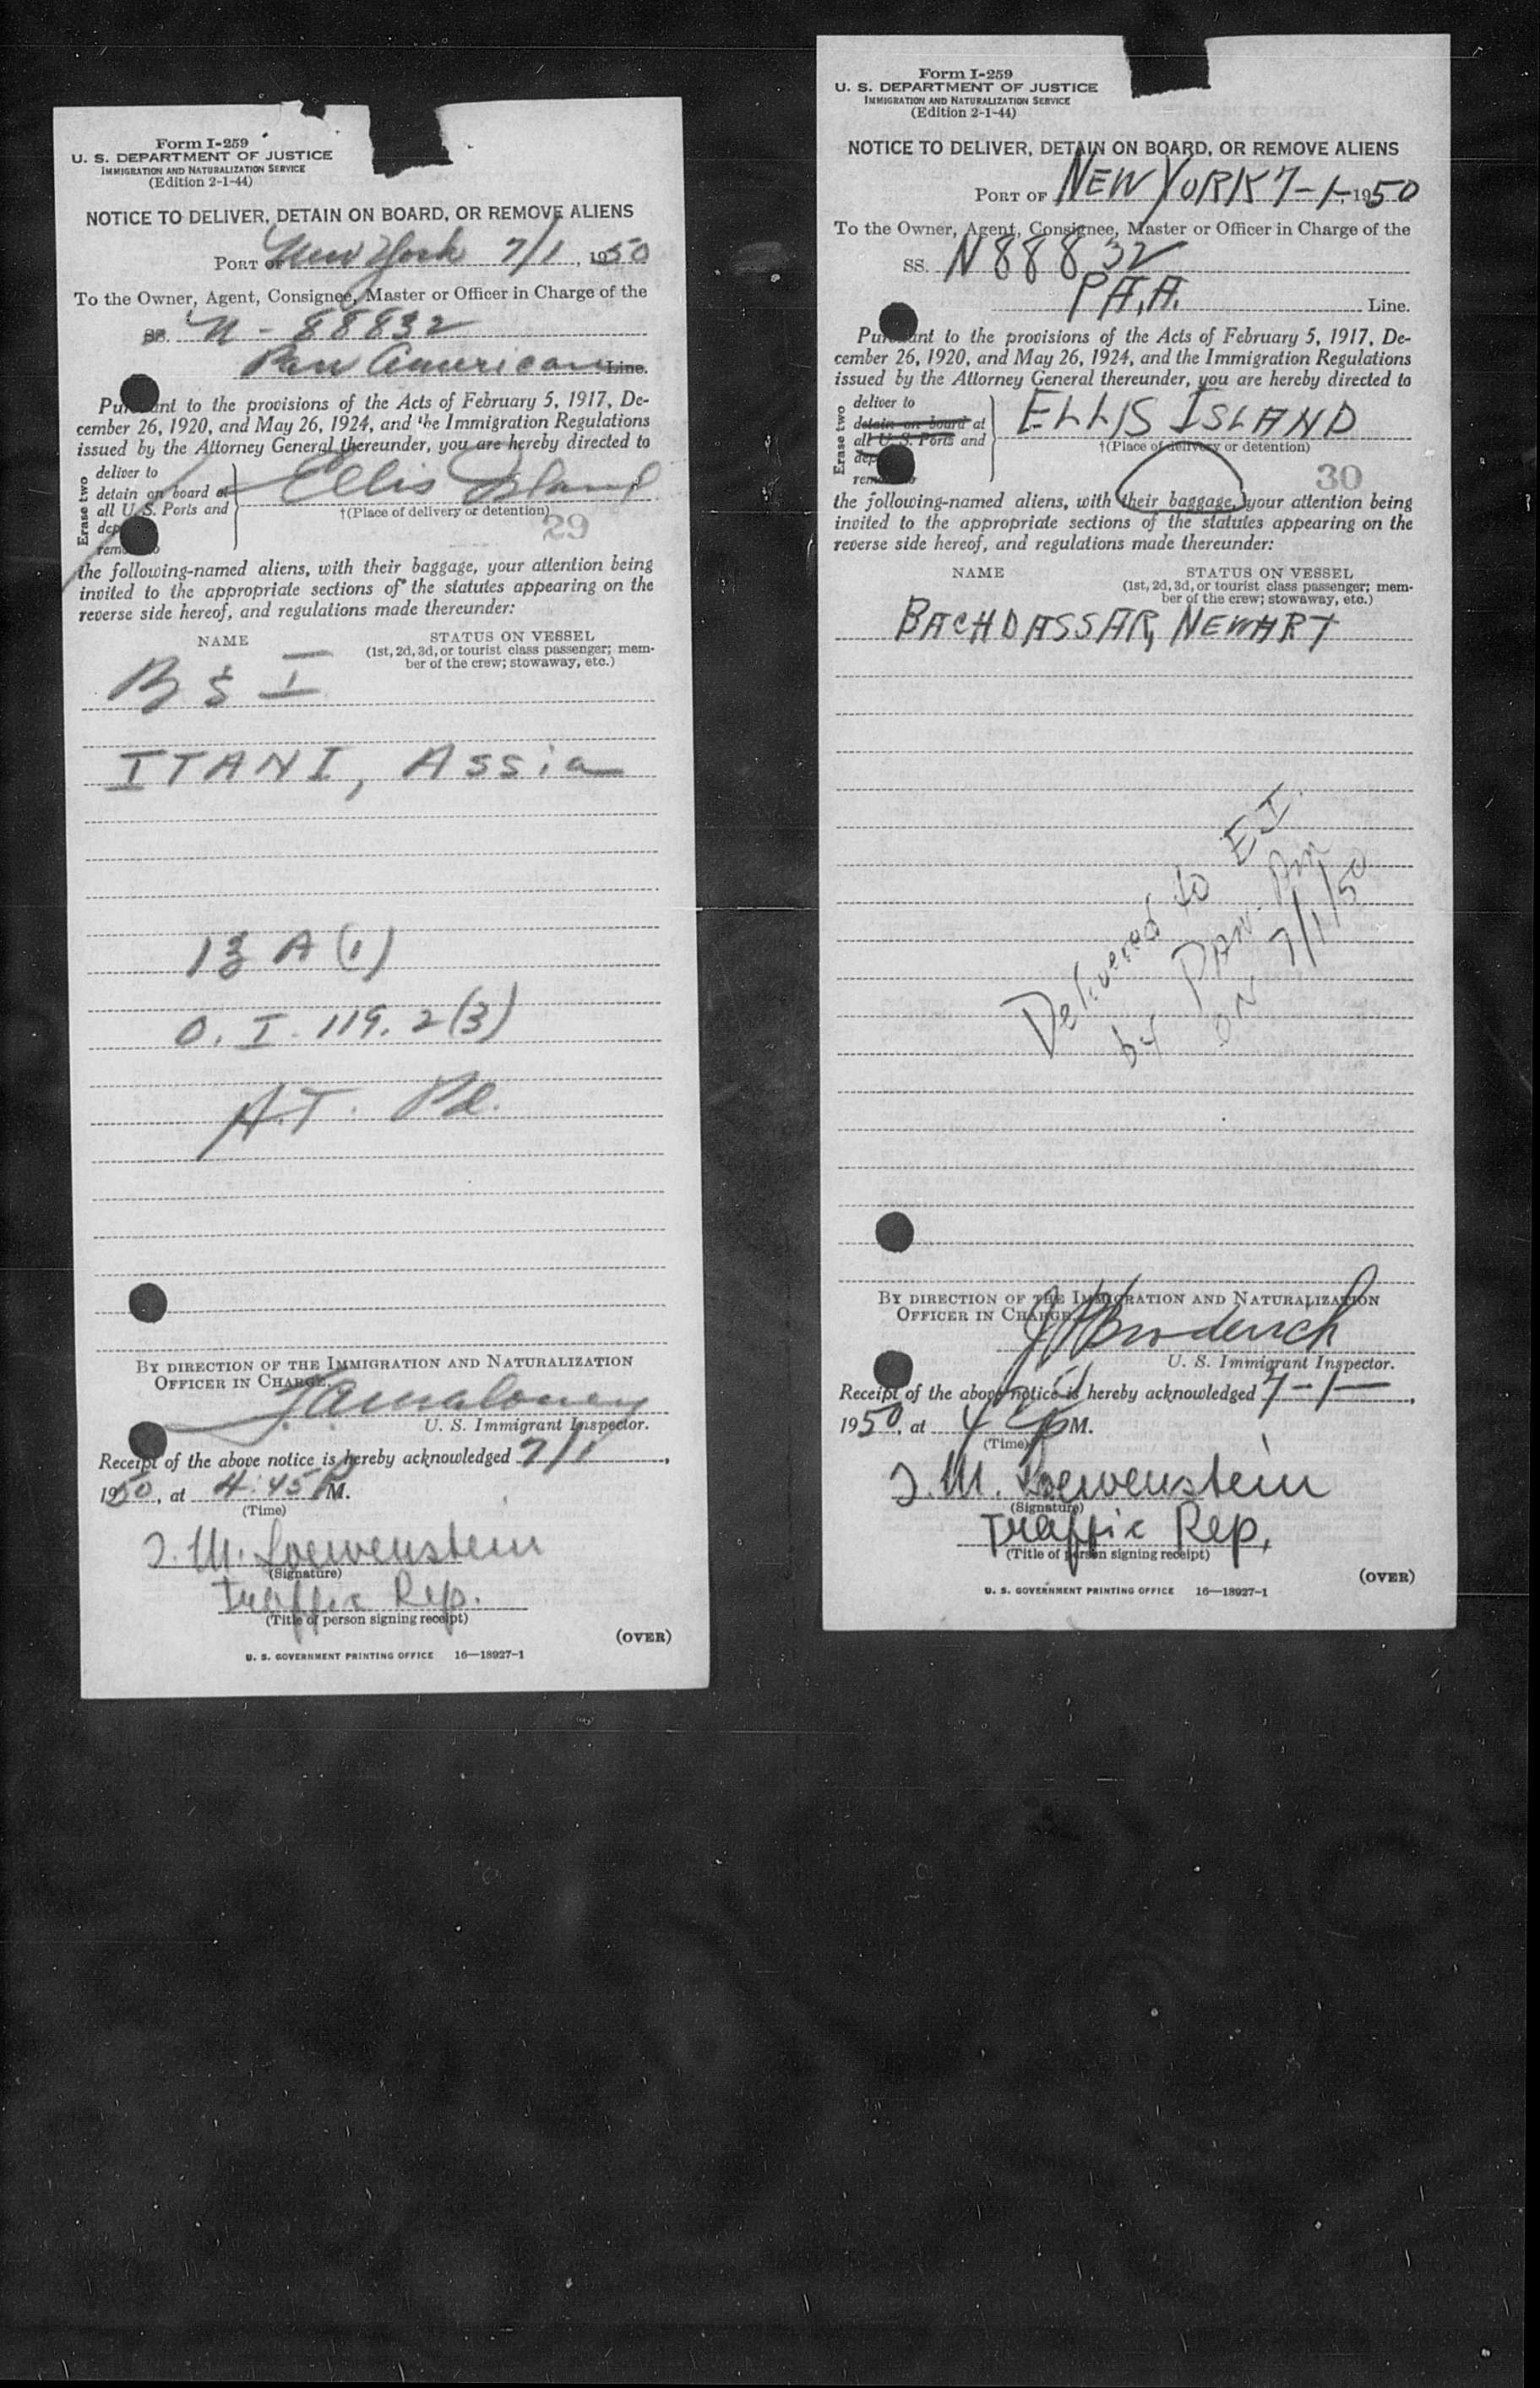 Form I-259
U. S. DEPARTMENT OF JUSTICE
IMMIGRATION AND NATURALIZATION SERVICE
(Edition 2-1-44)
NOTICE TO DELIVER, DETAIN ON BOARD, OR REMOVE ALIENS
PORT OF New York 7/1, 1950
To the Owner, Agent, Consignee, Master or Officer in Charge of the
SS. N-88832
Pan American Line.
Pursuant to the provisions of the Acts of February 5, 1917, De-
cember 26, 1920, and May 26, 1924, and the Immigration Regulations
issued by the Attorney General thereunder, you are hereby directed to
Erase two
deliver to
detain on board at
all U. S. Ports and
dep
remo
Ellis Island
†(Place of delivery or detention)
29
the following-named aliens, with their baggage, your attention being
invited to the appropriate sections of the statutes appearing on the
reverse side hereof, and regulations made thereunder:
NAME STATUS ON VESSEL
(1st, 2d, 3d, or tourist class passenger; mem-
ber of the crew; stowaway, etc.)
B & I
ITANI, Assia
13 A (1)
O. I. 119. 2(3)
A.T.
BY DIRECTION OF THE IMMIGRATION AND NATURALIZATION
OFFICER IN CHARGE.
Maloney
U. S. Immigrant Inspector.
Receipt of the above notice is hereby acknowledged 7/1,
1950, at 4:45 P M.
(Time)
J. M. Loewenstein
(Signature)
Traffic Rep.
(Title of person signing receipt)
(OVER)
U. S. GOVERNMENT PRINTING OFFICE 16—18927-1
Form I-259
U. S. DEPARTMENT OF JUSTICE
IMMIGRATION AND NATURALIZATION SERVICE
(Edition 2-1-44)
NOTICE TO DELIVER, DETAIN ON BOARD, OR REMOVE ALIENS
PORT OF NEW YORK 7-1-, 1950
To the Owner, Agent, Consignee, Master or Officer in Charge of the
SS. N88832
P.A.A. Line.
Pursuant to the provisions of the Acts of February 5, 1917, De-
cember 26, 1920, and May 26, 1924, and the Immigration Regulations
issued by the Attorney General thereunder, you are hereby directed to
Erase two
deliver to
detain on board at
all U. S. Ports and
dep
remo
ELLIS ISLAND
†(Place of delivery or detention)
30
the following-named aliens, with their baggage, your attention being
invited to the appropriate sections of the statutes appearing on the
reverse side hereof, and regulations made thereunder:
NAME STATUS ON VESSEL
(1st, 2d, 3d, or tourist class passenger; mem-
ber of the crew; stowaway, etc.)
BACHDASSAR, NEWART
Delivered to E I.
by PAN. Am
ON 7/1/50
BY DIRECTION OF THE IMMIGRATION AND NATURALIZATION
OFFICER IN CHARGE.
Broderick
U. S. Immigrant Inspector.
Receipt of the above notice is hereby acknowledged 7-1-,
1950, at M.
(Time)
J. M. Loewenstein
(Signature)
Traffic Rep.
(Title of person signing receipt)
(OVER)
U. S. GOVERNMENT PRINTING OFFICE 16—18927-1